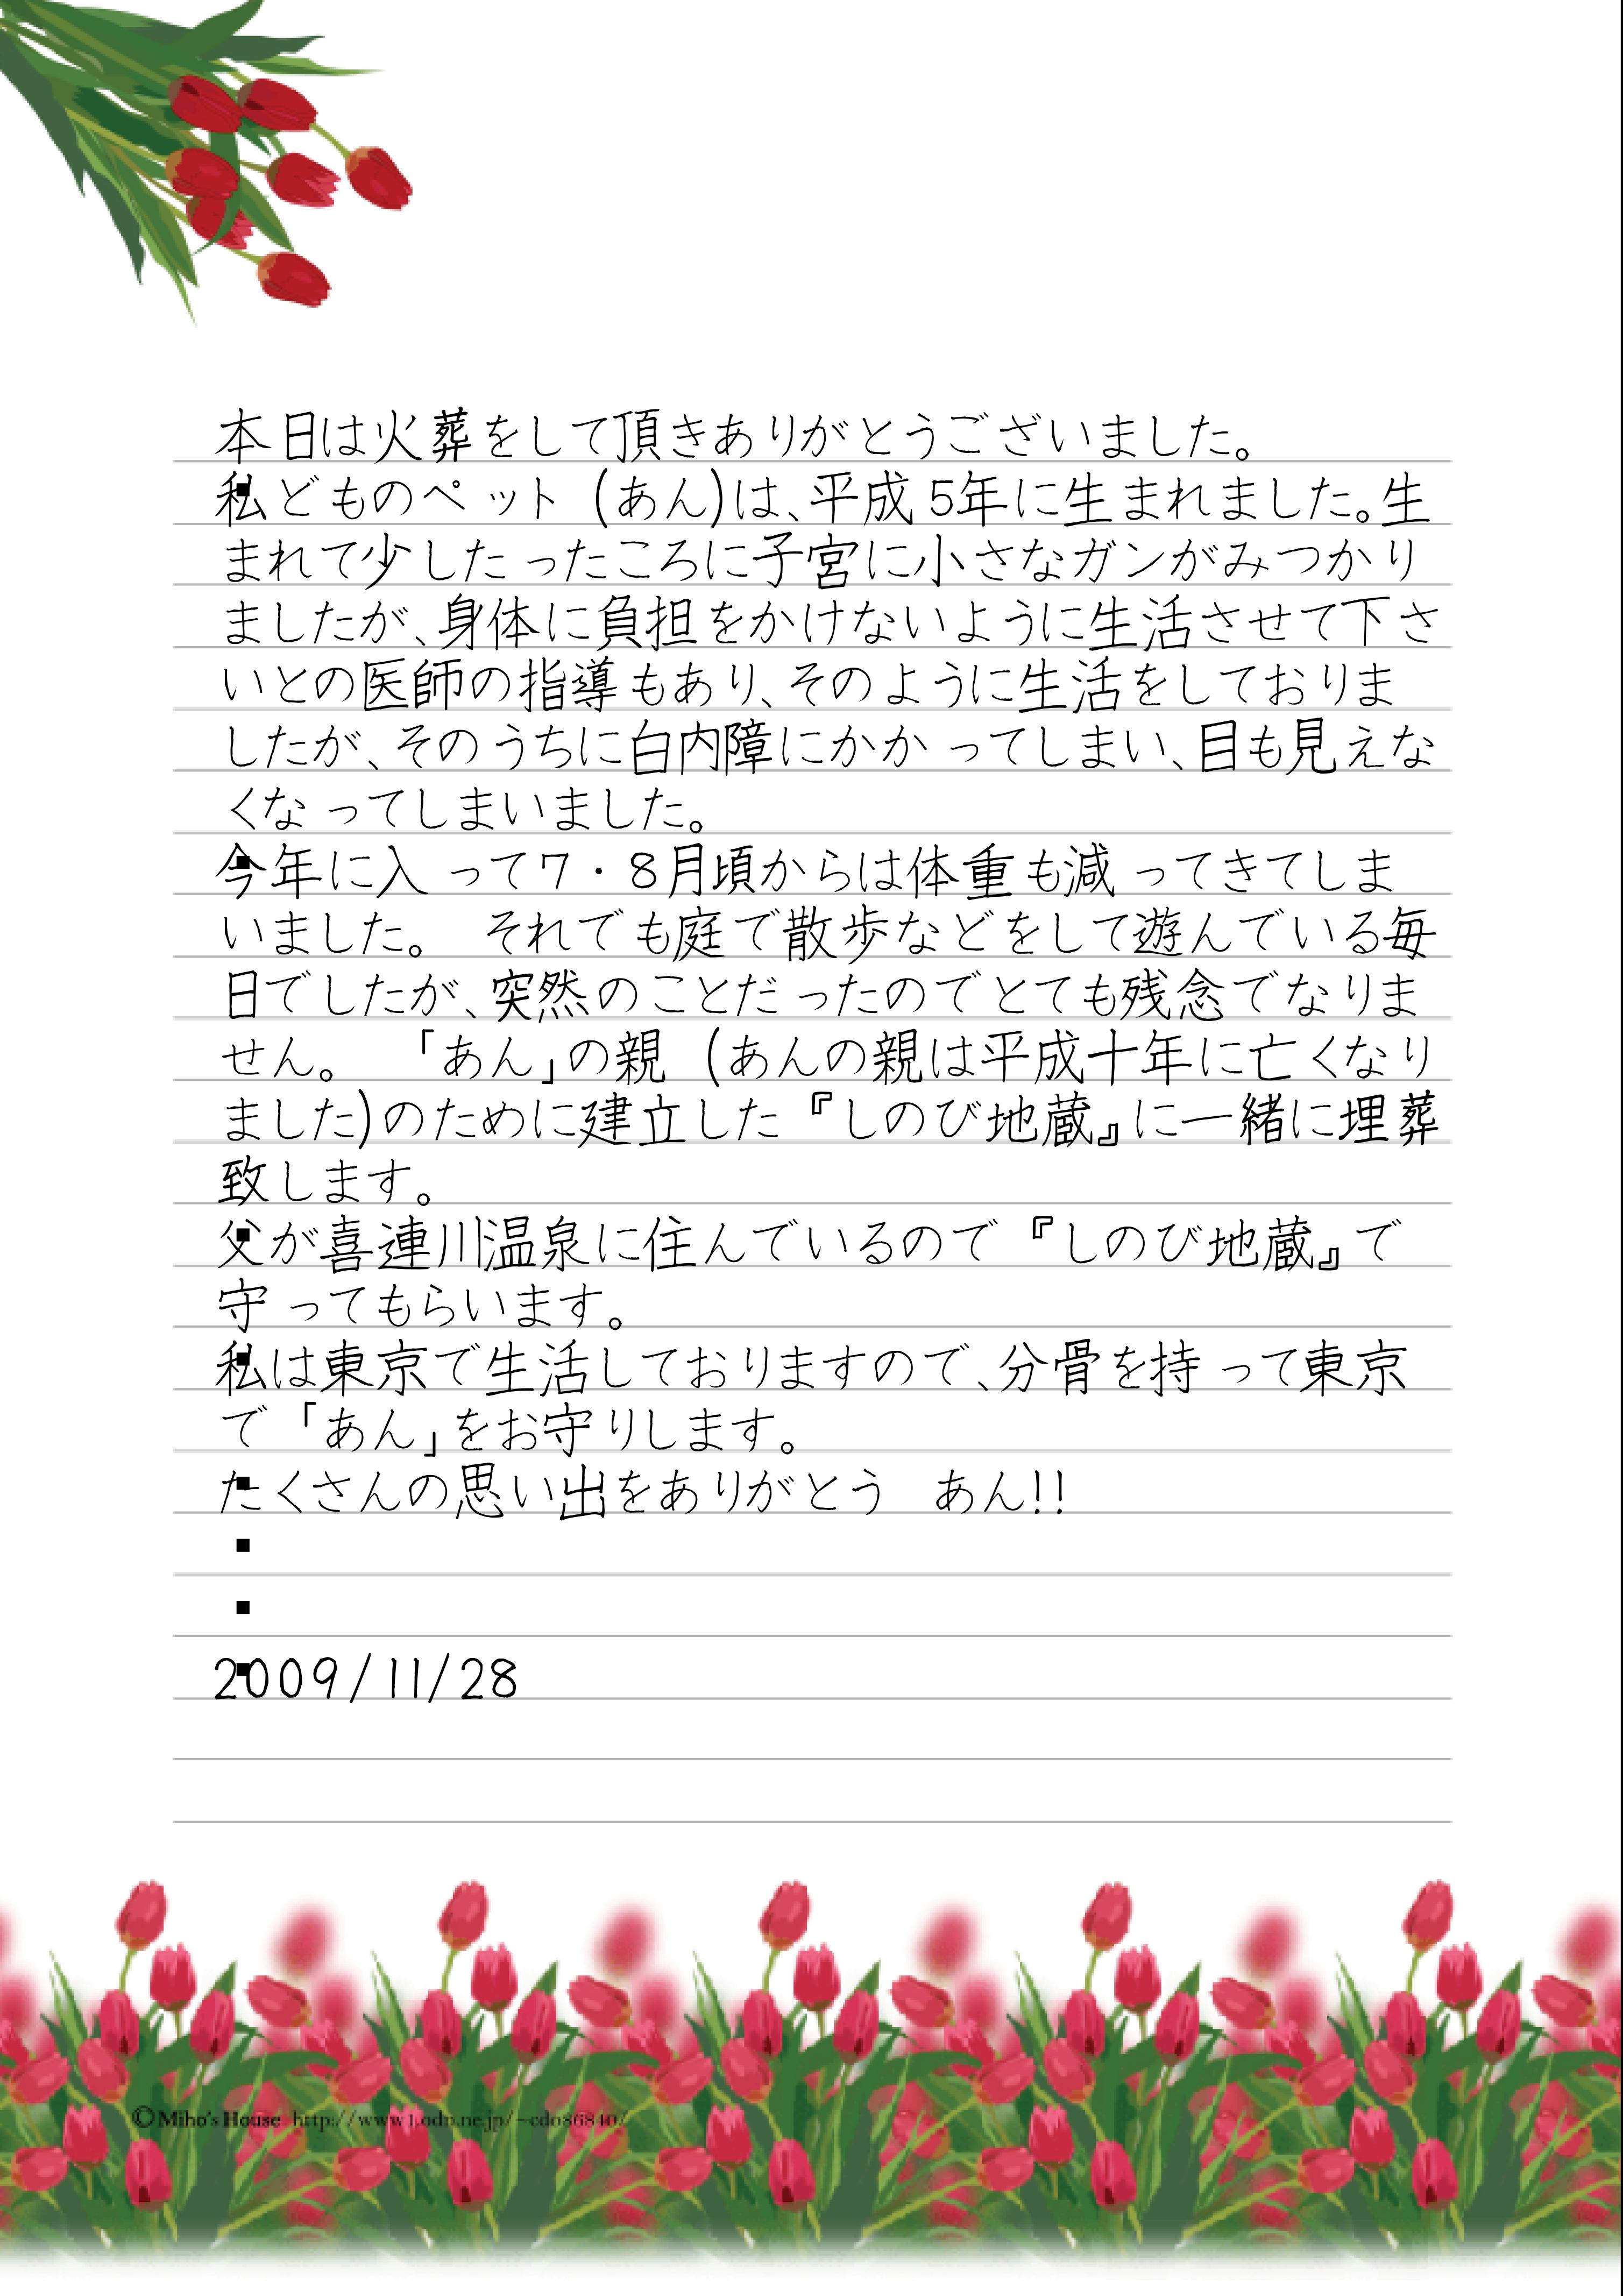 本日は火葬をして頂きありがとうございました。
私どものペット（あん）は、平成5年に生まれました。生
まれて少したったころに子宮に小さなガンがみつかり
ましたが、身体に負担をかけないように生活させて下さ
いとの医師の指導もあり、そのように生活をしておりま
したが、そのうちに白内障にかかってしまい、目も見えな
くなってしまいました。
今年に入って７・８月頃からは体重も減ってきてしま
いました。　それでも庭で散歩などをして遊んでいる毎
日でしたが、突然のことだったのでとても残念でなりま
せん。　「あん」の親（あんの親は平成十年に亡くなり
ました）のために建立した『しのび地蔵』に一緒に埋葬
致します。
父が喜連川温泉に住んでいるので『しのび地蔵』で
守ってもらいます。
私は東京で生活しておりますので、分骨を持って東京
で「あん」をお守りします。
たくさんの思い出をありがとう　あん！！
2009/11/28
©Miho's House http://www1.odn.ne.jp/~cdo86840/